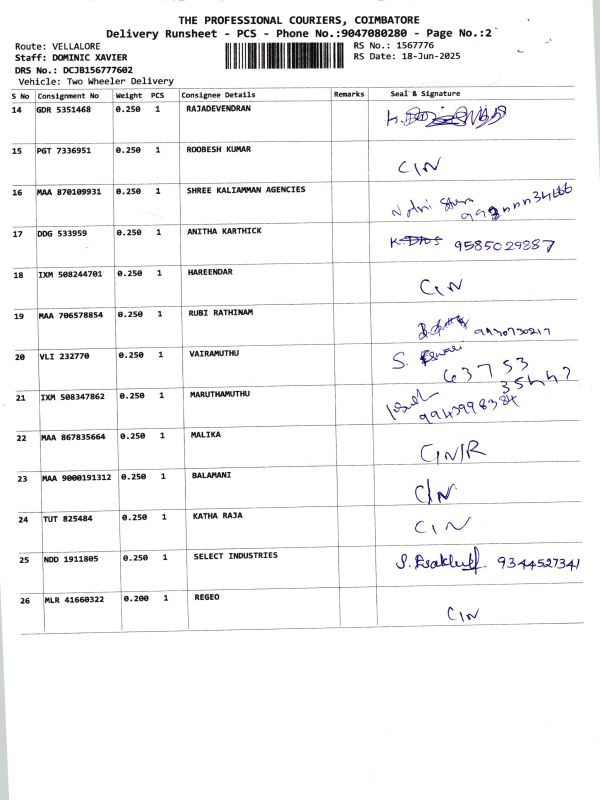 THE PROFESSIONAL COURIERS, COIMBATORE
Delivery Runsheet - PCS - Phone No.:9047080280 - Page No.:2
Route: VELLALORE RS No.: 1567776
Staff: DOMINIC XAVIER RS Date: 18-Jun-2025
DRS No.: DCJB156777602
Vehicle: Two Wheeler Delivery
S No Consignment No Weight PCS Consignee Details Remarks Seal & Signature
14 GDR 5351468 0.250 1 RAJADEVENDRAN
15 PGT 7336951 0.250 1 ROOBESH KUMAR CIN
16 MAA 870109931 0.250 1 SHREE KALIAMMAN AGENCIES
17 DDG 533959 0.250 1 ANITHA KARTHICK 9585029887
18 IXM 508244701 0.250 1 HAREENDAR CIN
19 MAA 706578854 0.250 1 RUBI RATHINAM 9930730217
20 VLI 232770 0.250 1 VAIRAMUTHU S. 63753
35447
21 IXM 508347862 0.250 1 MARUTHAMUTHU 9943998384
22 MAA 867835664 0.250 1 MALIKA CIN/R
23 MAA 9000191312 0.250 1 BALAMANI CIN
24 TUT 825484 0.250 1 KATHA RAJA CIN
25 NDD 1911805 0.250 1 SELECT INDUSTRIES S. 9344527341
26 MLR 41660322 0.200 1 REGEO CIN